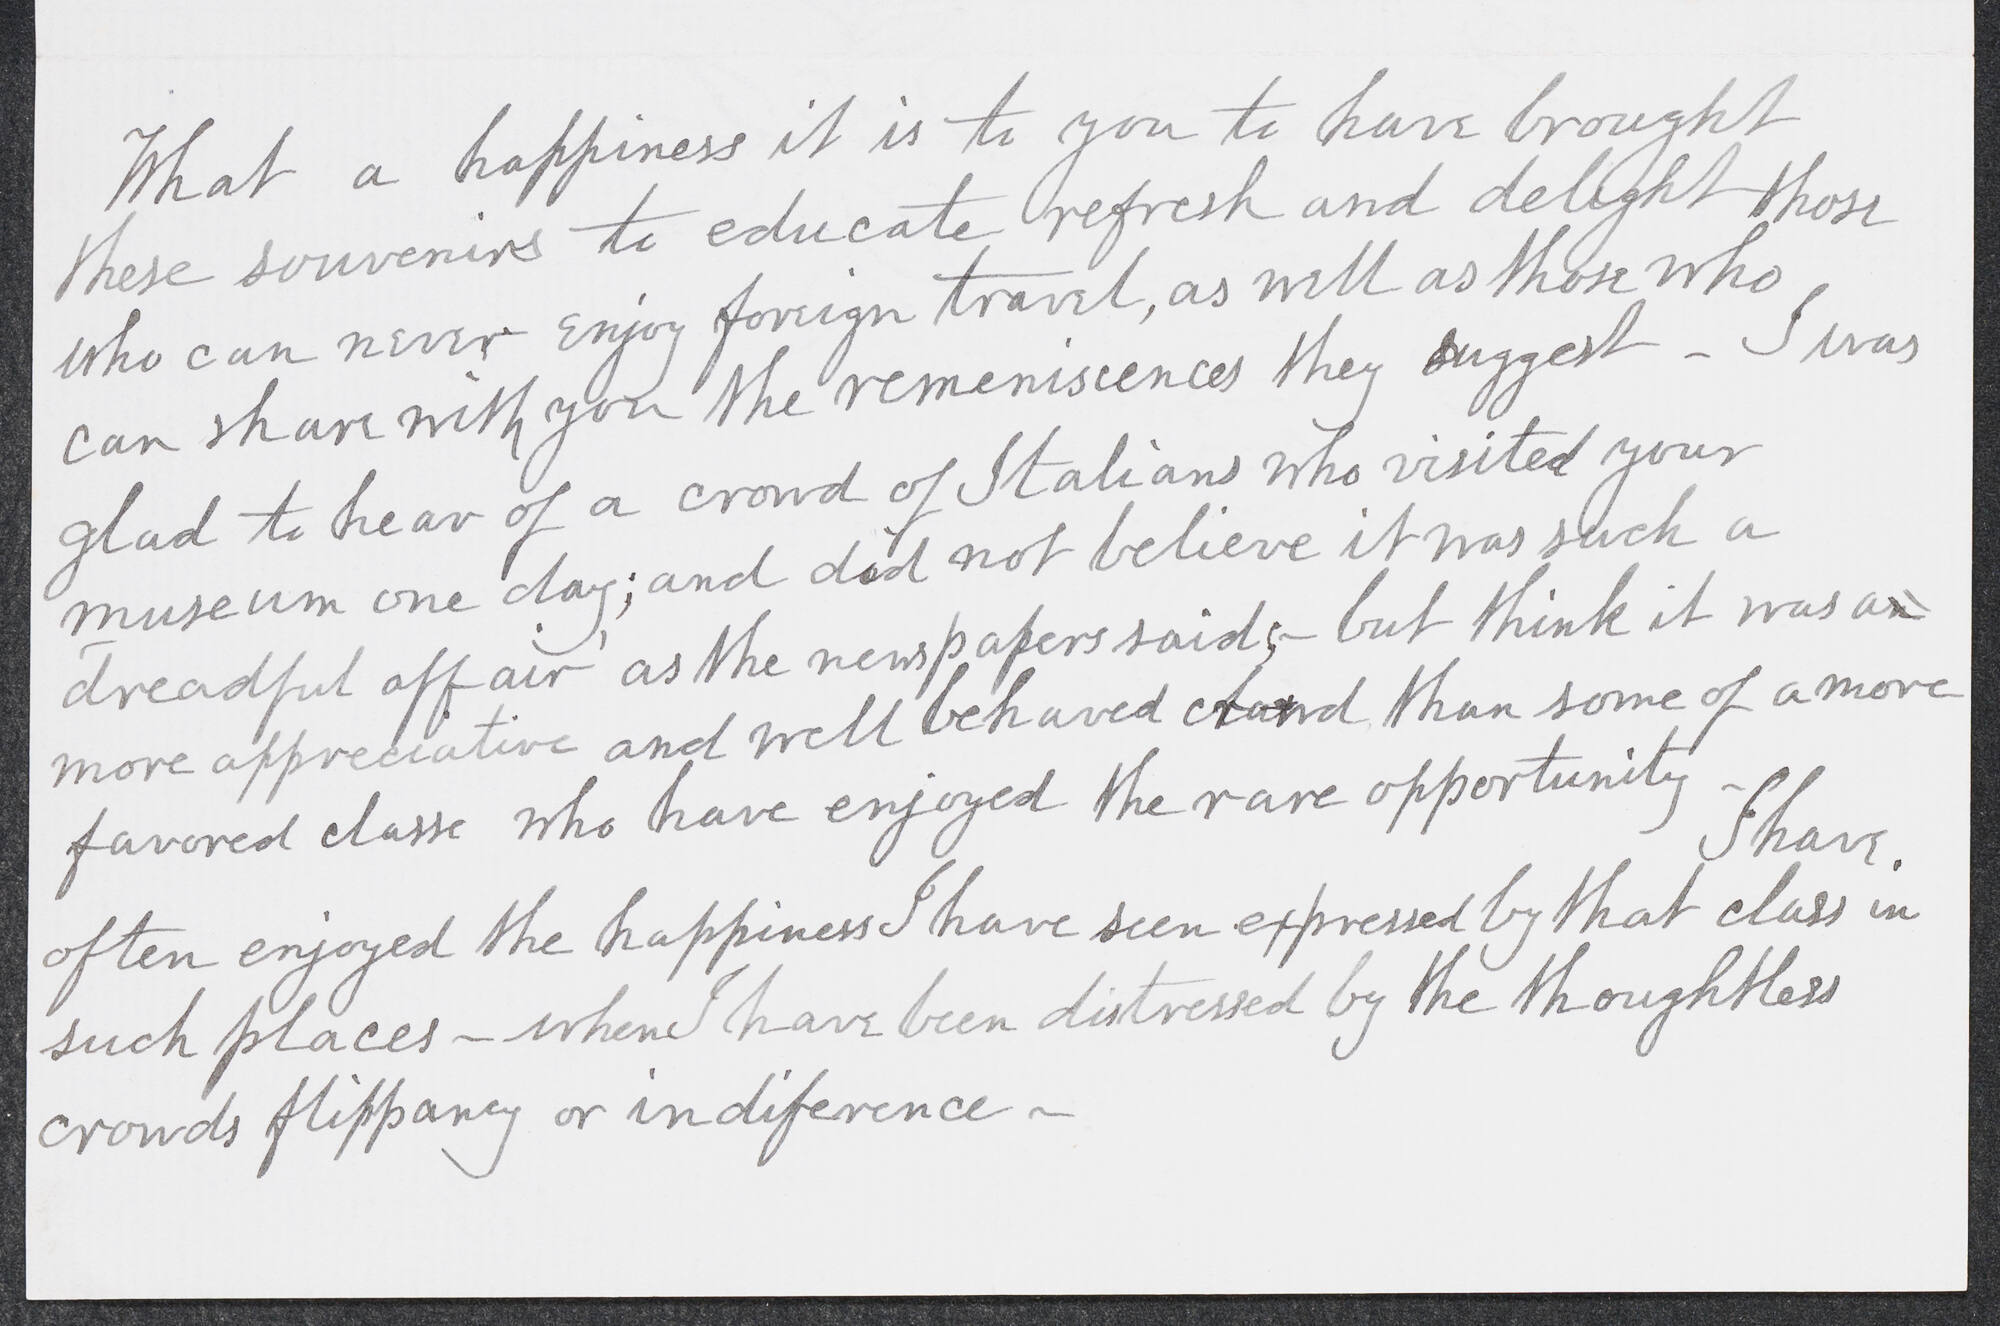 What a happiness it is to you to have brought
these souvenirs to educate refresh and delight those
who can never enjoy foreign travel, as well as those who
can share with you the remeniscences they suggest - I was
glad to hear of a crowd of Italians who visited your
museum one day; and did not believe it was such a
dreadful affair as the newspapers said; - but think it was a
more appreciative and well behaved crowd than some of a more
favored classe who have enjoyed the rare opportunity -
I have
often enjoyed the happiness I have seen expressed by that class in
such places - when I have been distressed by the thoughtless
crowds flippancy or indiference -